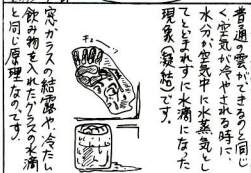 普通、雲ができるのも同じ
く空気が冷やされる時に、
水分が空気中に水蒸気とし
てとどまれずに水滴になった
現象(凝結)です。
チューッ
窓ガラスの結露や、冷たい
飲み物を入れたグラスの水滴
と同じ原理なのです。